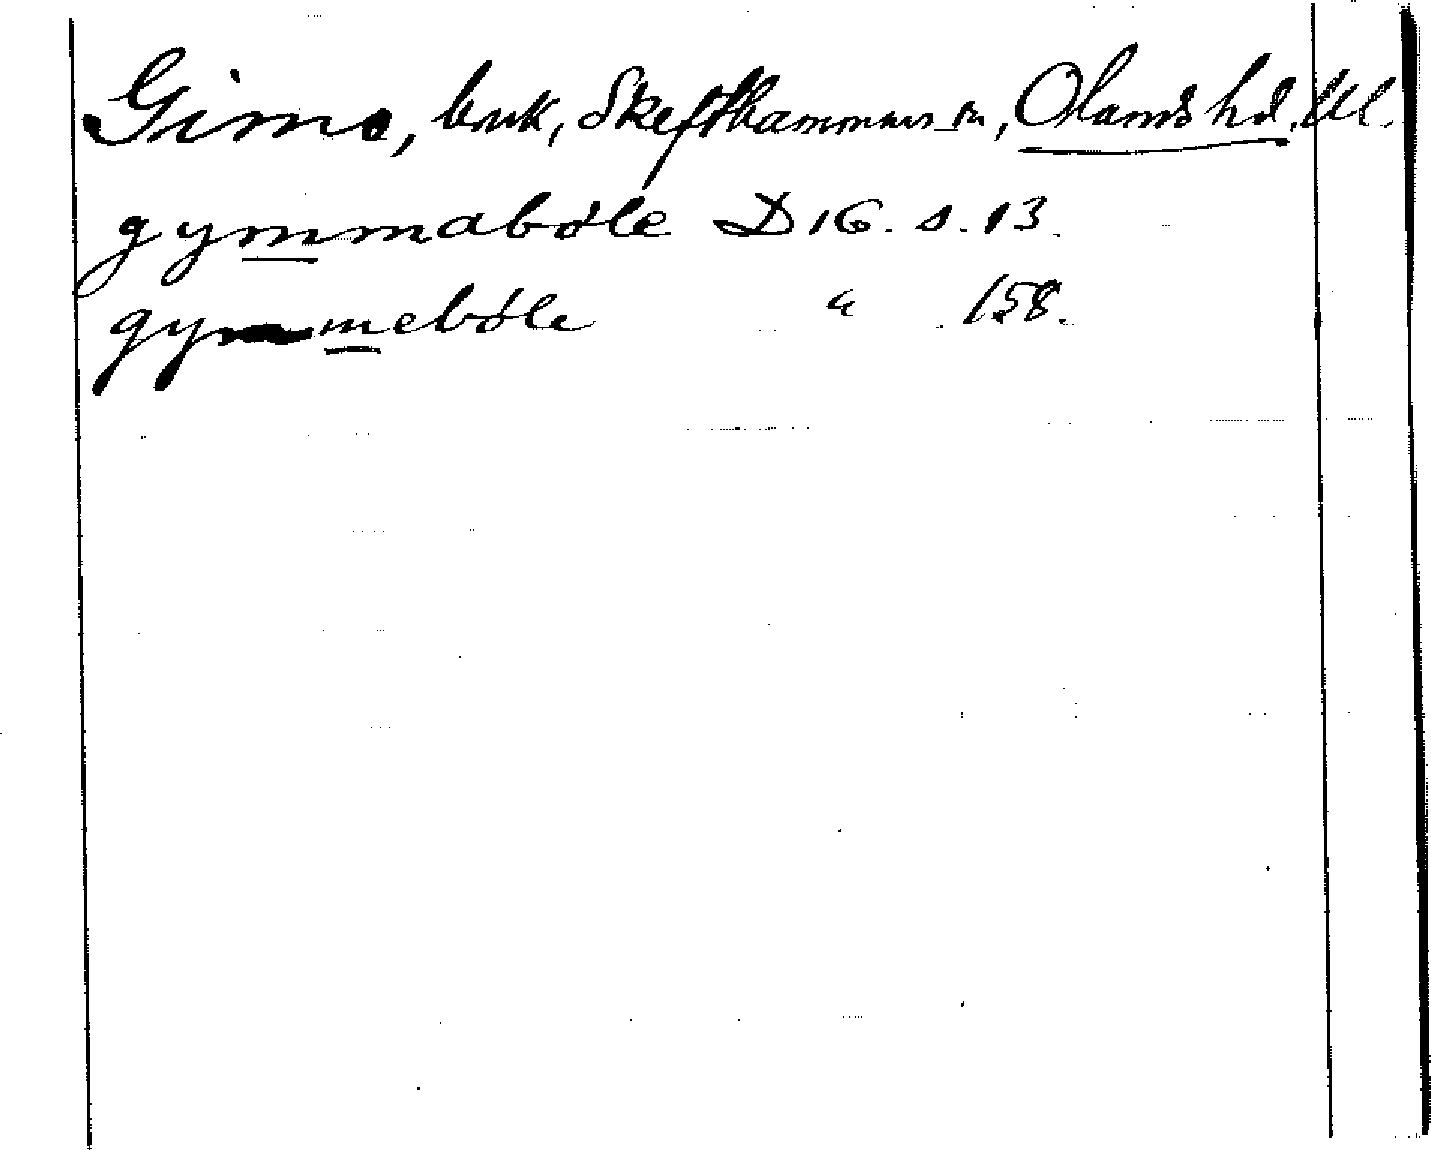 Gimo, bruk, Skefthammars sn, Olands hd. Ul.
gymmaböle D 16. s. 13.
gymmeböle " 158.